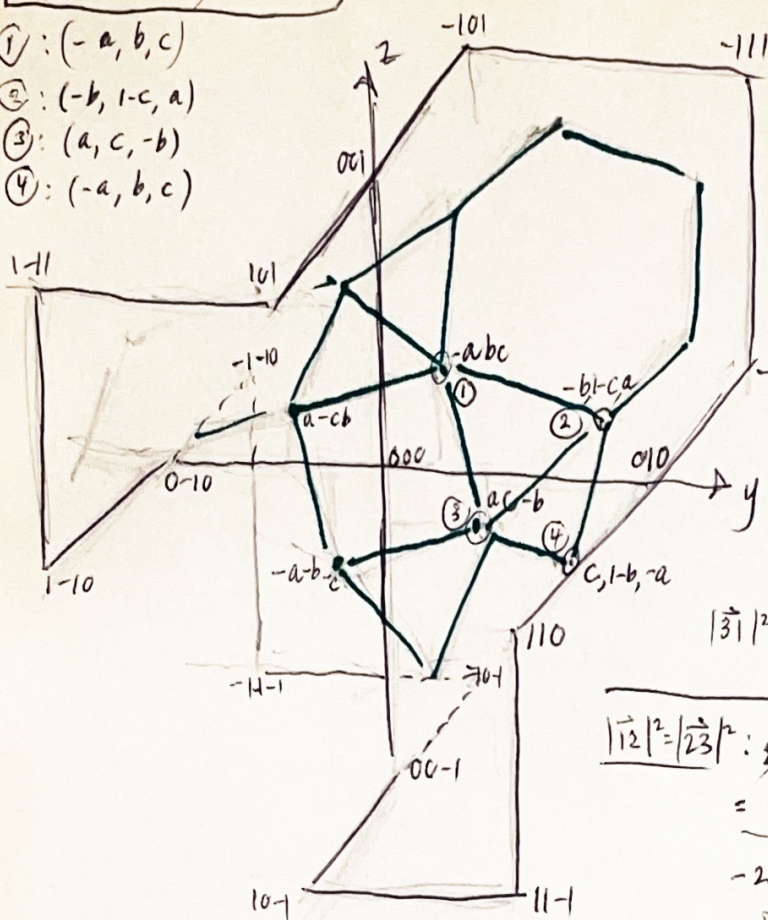 ①: (-a, b, c)
②: (-b, 1-c, a)
③: (a, c, -b)
④: (-a, b, c)
-101
-111
z
001
1-11
101
-1-10
-abc
①
-b1-ca
②
a-cb
000
010
y
0-10
③
ac-b
④
-a-b-c
c,1-b,-a
1-10
110
|31|²
-1-1-1
-10-1
|12|²=|23|²:
=
00-1
-2
10-1
11-1